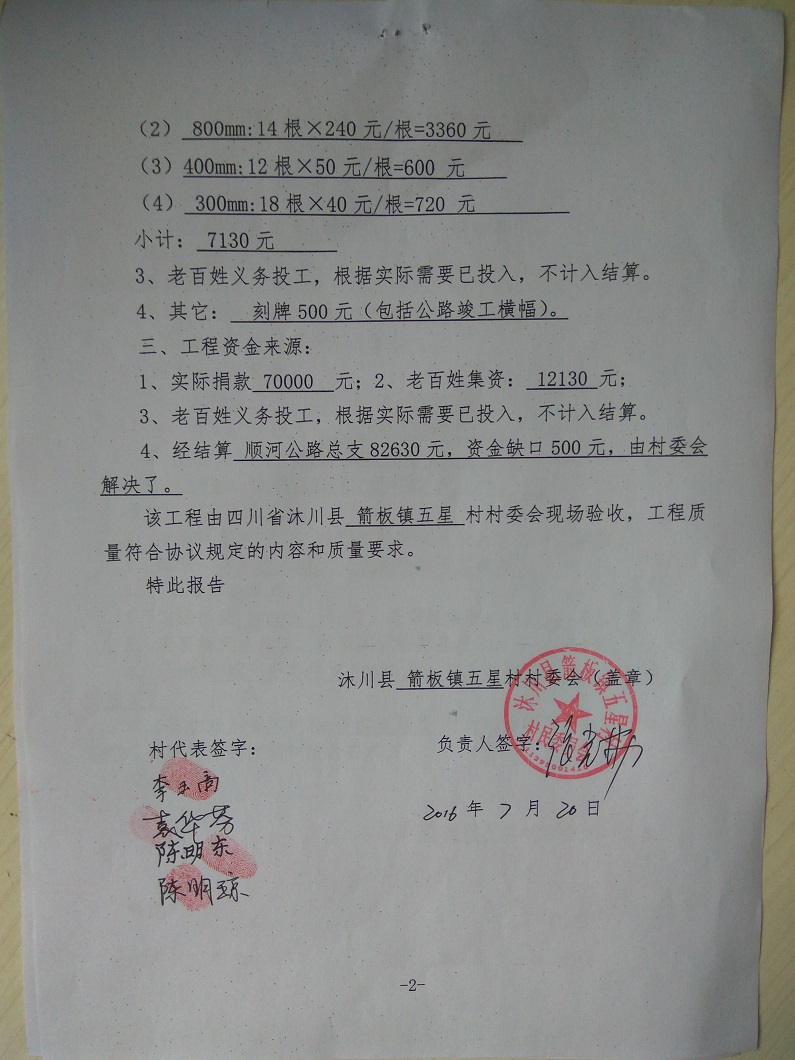 （2） 800mm:14 根×240 元/根=3360 元
（3）400mm:12 根×50 元/根=600 元
（4） 300mm:18 根×40 元/根=720 元
小计： 7130 元
3、老百姓义务投工，根据实际需要已投入，不计入结算。
4、其它： 刻牌 500 元（包括公路竣工横幅）。
三、工程资金来源：
1、实际捐款 70000 元；2、老百姓集资： 12130 元；
3、老百姓义务投工，根据实际需要已投入，不计入结算。
4、经结算 顺河公路总支 82630 元，资金缺口 500 元，由村委会
解决了。
该工程由四川省沐川县 箭板镇五星 村村委会现场验收，工程质
量符合协议规定的内容和质量要求。
特此报告
沐川县 箭板镇五星村村委会（盖章）
沐川县箭板镇五星村
村民委员会
村代表签字：
负责人签字：
李玉高
2016 年 7 月 20 日
袁华芬
陈明东
陈明琼
-2-